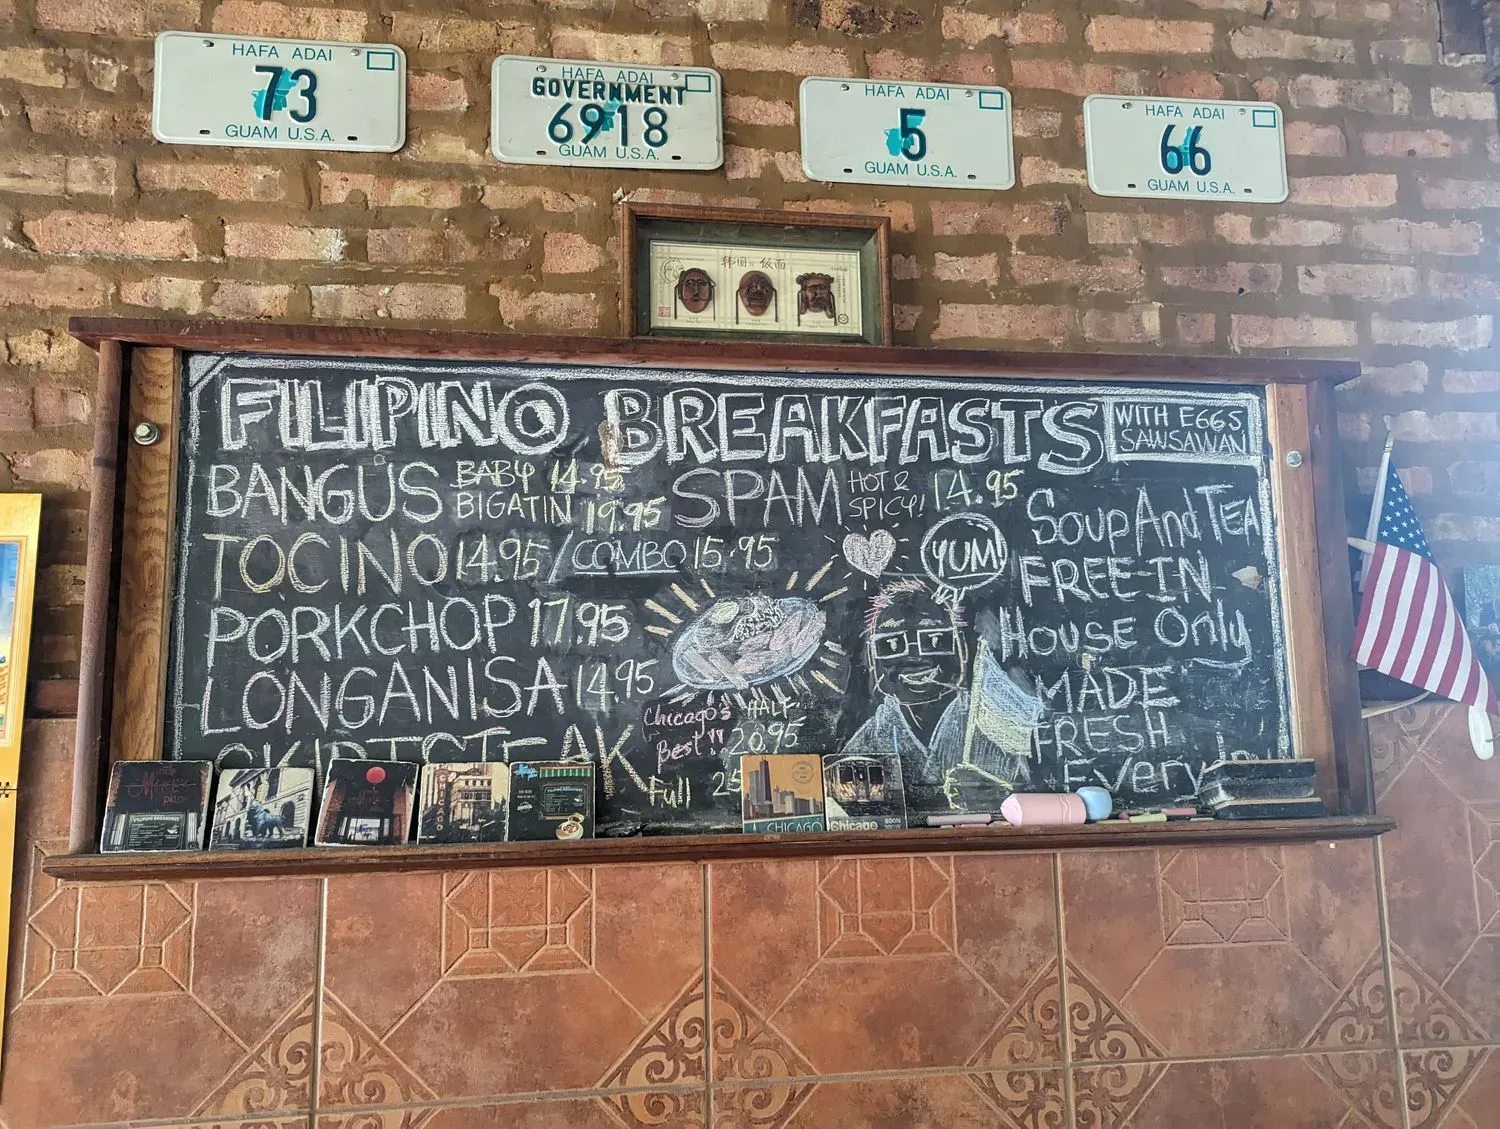 HAFA ADAI
73
GUAM U.S.A.
HAFA ADAI
GOVERNMENT
6918
GUAM U.S.A.
HAFA ADAI
5
GUAM U.S.A.
HAFA ADAI
66
GUAM U.S.A.
FILIPINO BREAKFASTS
WITH EGGS
SAWSAWAN
BANGUS BABY 14.95
BIGATIN 19.95
SPAM HOT &
SPICY! 14.95
TOCINO 14.95 / COMBO 15.95
PORKCHOP 17.95
LONGANISA 14.95
SKIRTSTEAK
Chicago's
Best!!
HALF
20.95
Full 25
YUM!
Soup And TEA
FREE-IN
HOUSE Only
MADE
FRESH
Every
CHICAGO
A CHICAGO
Chicago